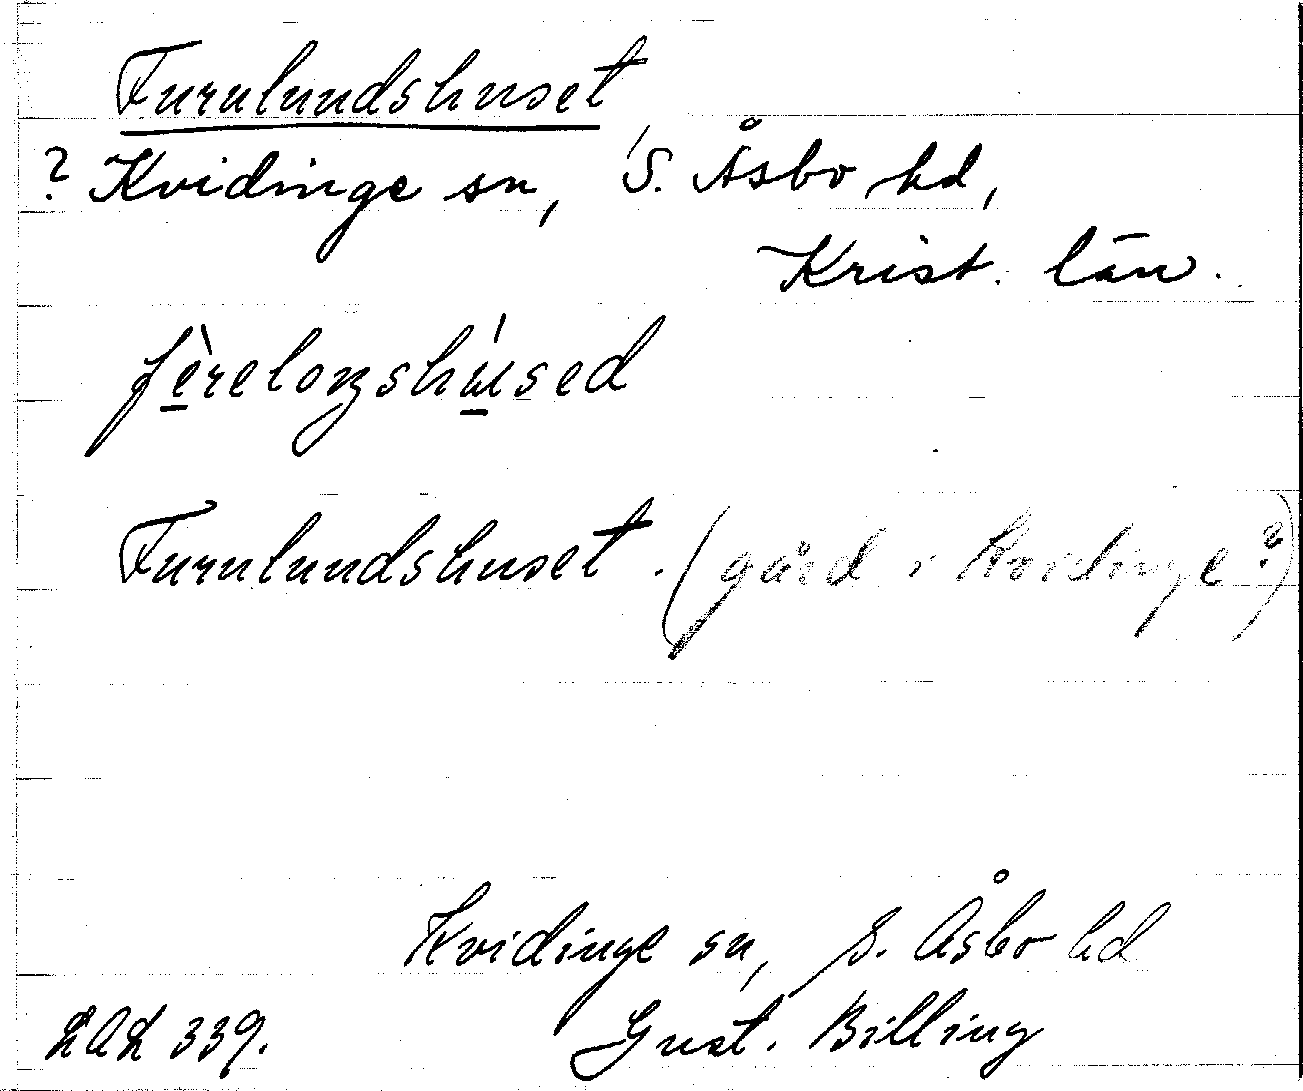 Furulundshuset
? Kvidinge sn, S. Åsbo hd,
Krist. län.
fèreloŋshúsed
Furulundshuset. (gård i Kvidinge?)
Kvidinge sn, S. Åsbo hd
LAL 339. Gust. Billing